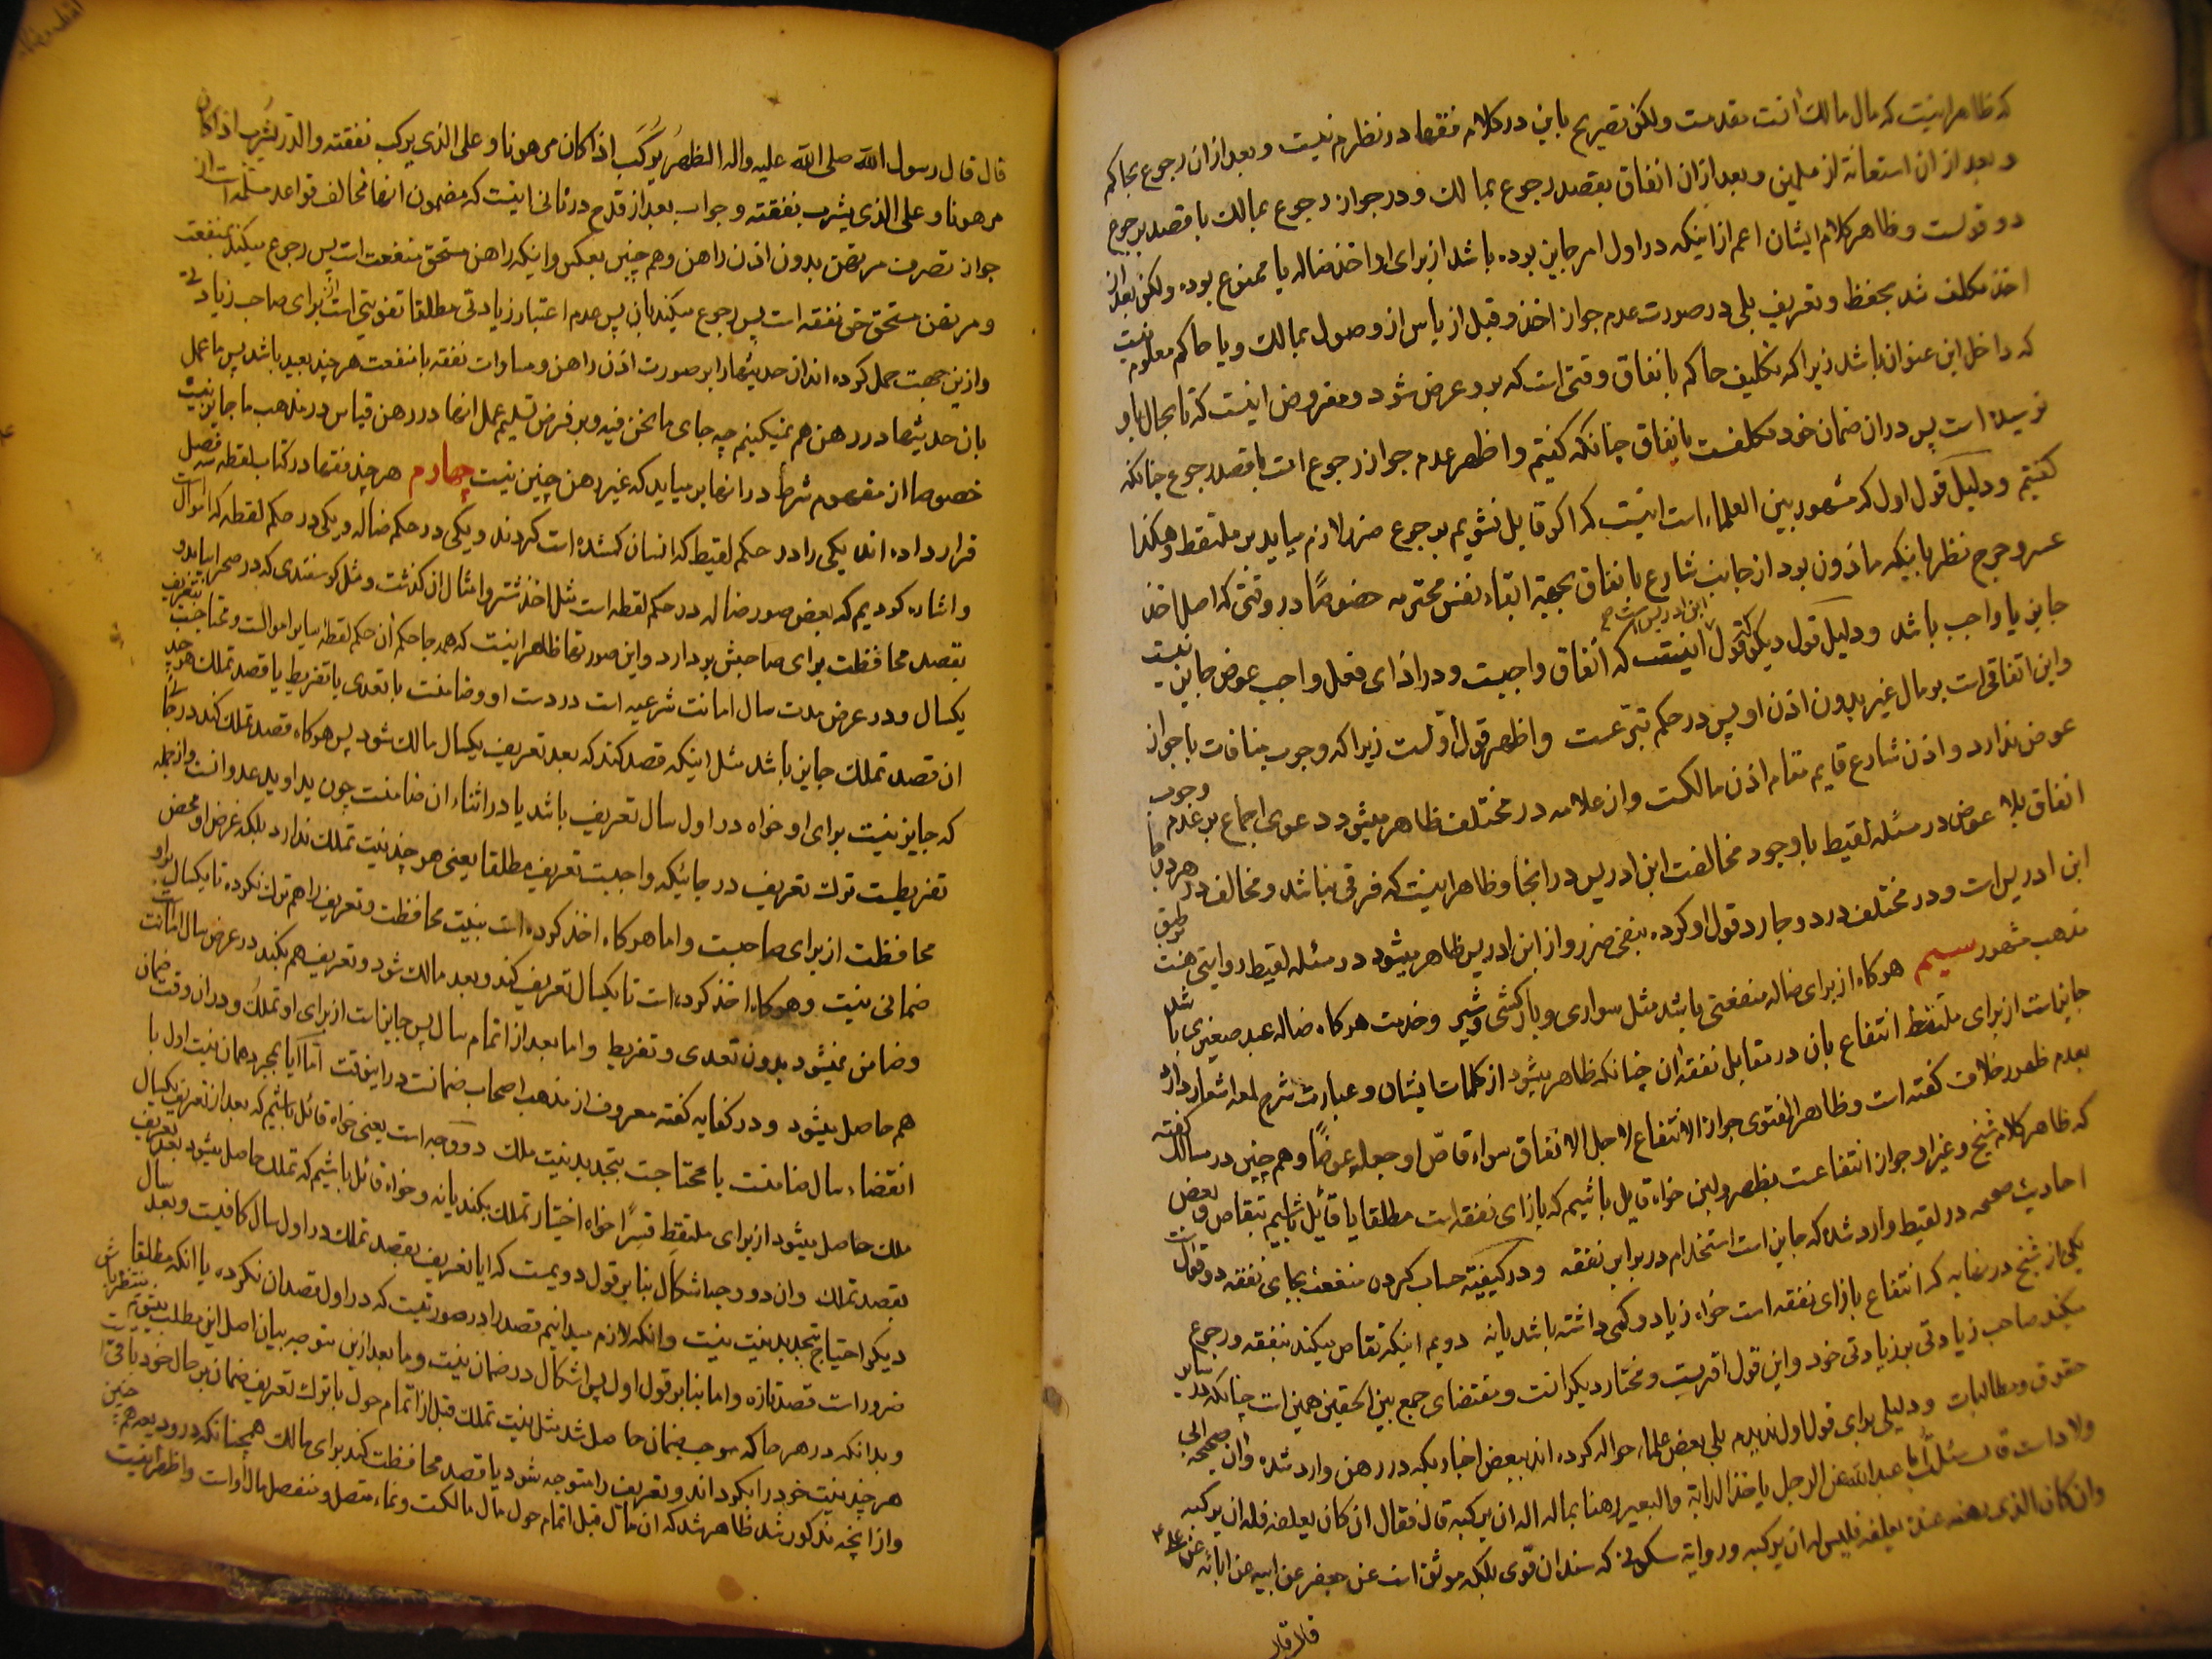 که ظاهر اینست که مال مالک انت مقدمست ولکن تصریح باین در کلام فقها در نظرم نیست و بعد از ان رجوع بحاکم
و بعد از ان استعانة از مسلمین و بعد از ان انفاق بقصد رجوع بمالک و در جواز رجوع بمالک با قصد رجوع
دو قولست و ظاهر کلام ایشان اعم از اینکه در اول امر جایز بوده باشد از برای او اخذ ضاله یا ممنوع بوده ولکن بعد از
اخذ مکلف شد بحفظ و تعریف بلی در صورت عدم جواز اخذ و قبل از یاس از وصول بمالک و یا حاکم معلوم نیست
که داخل این عنوان باشد زیرا که تکلیف حاکم بانفاق وقتی است که برو عرض شود و مفروض اینست که تا بحال باو
نرسیده است پس در ان ضمان خود مکلفست بانفاق چنانکه گفتیم و اظهر عدم جواز رجوع است با قصد رجوع چنانکه
گفتیم و دلیل قول اول که مشهور بین العلماء است اینست که اکر قایل نشویم برجوع ضرر لازم میاید بر ملتقط و هکذا
عسر و حرج نظر باینکه ماذون بود از جانب شارع بانفاق بجهة ابقاء نفس محترمه خصوصًا در وقتی که اصل اخذ
جایز یا واجب باشد و دلیل قول دیکر که قول ابن ادریس است اینست که انفاق واجبست و در ازای فعل واجب عوض جایز نیست
و این اتفاقی است بر مال غیر بدون اذن او پس در حکم تبرعست و اظهر قول اولست زیرا که وجوب منافات با جواز
عوض ندارد و اذن شارع قایم مقام اذن مالکست و از علامه در مختلف ظاهر میشود دعوی اجماع بر عدم وجوب
انفاق بلا عوض در مسئله لقیط با وجود مخالفت ابن ادریس در انجا و ظاهر اینست که فرقی نباشد و مخالف در هر دو جا
ابن ادریس است و در مختلف در دو جا رد قول او کرده بنفی ضرر و از ابن ادریس ظاهر میشود در مسئله لقیط روایتی هست بر طبق
مذهب مشهور سیم هرکاه از برای ضاله منفعتی باشد مثل سواری و بارکشی و شیر و خدمت هرکاه ضاله عبد صغیری باشد
جایز است از برای ملتقط انتفاع بان در مقابل نفقه ان چنانکه ظاهر میشود از کلمات ایشان و عبارت شرح لمعه اشعار دارد
بعدم ظهور خلاف کفته است و ظاهر الفتوی جواز الانتفاع لاجل الانفاق سواء قاصّ او جعله عوضًا و هم چنین در مسالک کفته
که ظاهر کلام شیخ و غیر او جواز انتفاعست بظهر و لبن خواه قایل باشیم که بازای نفقه است مطلقا یا قائل باشیم بتقاص و بعض
احادیث صحیحه در لقیط وارد شده که جایز است استخدام در برابر نفقه و در کیفیته حساب کردن منفعت بجای نفقه دو قول است
یکی از شیخ در نهایه که انتفاع بازای نفقه است خواه زیاد و کمی داشته باشد یا نه دویم اینکه تقاص میکند بنفقه و رجوع
میکند صاحب زیادتی بر زیادتی خود و این قول اقربست و مختار دیکرانست و مقتضای جمع بین الحقین همین است چنانکه در سایر
حقوق و مطالبات و دلیلی برای قول اول ندیدم بلی بعض علماء حواله کرده اند ببعض اخباریکه در رهن وارد شده و ان صحیحه ابی
ولاد است قال سئلت ابا عبدالله عن الرجل یاخذ الدابة والبعیر رهنا بماله اله ان یرکبه قال فقال ان کان یعلفه فله ان یرکبه
و ان کان الذی رهنه عنده یعلفه فلیس له ان یرکبه و روایة سکونی که سندان قوی بلکه موثق است عن جعفر عن ابیه عن ابائه عن علی ع
قال قال
قال قال رسول الله صلی الله علیه واله الظهر یُرکَب اذا کان مرهونا و علی الذی یرکب نفقته و الدر یشرب اذا کان
مرهونا و علی الذی یشرب نفقته و جواب بعد از قدح در ثانی اینست که مضمون انها مخالف قواعد مسلمه است از
جواز تصرف مرتهن بدون اذن راهن و هم چنین بعکس و اینکه راهن مستحق منفعت است پس رجوع میکند بمنفعت
و مرتهن مستحق حق نفقه است پس رجوع میکند بان پس عدم اعتبار زیادتی مطلقا تفویتی است از برای صاحب زیادتی
و ازین جهت حمل کرده اند ان حدیثها را بر صورت اذن راهن و مساوات نفقه با منفعت هر چند بعید باشد پس ما عمل
بان حدیثها در رهن هم نمیکنیم چه جای ما نحن فیه و بر فرض تسلیم عمل انها در رهن قیاس در مذهب ما جایز نیست
خصوصا از مفهوم شرط در انها بر میاید که غیر رهن چنین نیست چهارم هر چند فقها در کتاب لقطه سه فصل
قرار داده اند یکی را در حکم لقیط که انسان کمشده است کردند و یکی در حکم ضاله و یکی در حکم لقطه که اموال است
و اشاره کردیم که بعض صور ضاله در حکم لقطه است مثل اخذ شتر و امثال ان کذشت و مثل کوسفندی که در صحرا بیابد و
بقصد محافظت برای صاحبش بردارد و این صورتها ظاهر اینست که همه جا حکم ان حکم لقطه سایر اموالست و محتاجست بتعریف
یکسال و در عرض مدت سال امانت شرعیه است در دست او و ضامنست با تعدی یا تفریط یا قصد تملک هر چند
ان قصد تملک جایز باشد مثل اینکه قصد کند که بعد تعریف یکسال مالک شود پس هرکاه قصد تملک کند در جائی
که جایز نیست برای او خواه در اول سال تعریف باشد یا در اثناء ان ضامنست چون ید او ید عدوانست و از جمله
تفریطست ترک تعریف در جائیکه واجبست تعریف مطلقا یعنی هر چند نیت تملک ندارد بلکه غرض او محض
محافظت از برای صاحبست و اما هرکاه اخذ کرده است بنیت محافظت و تعریف را هم ترک نکرده تا یکسال بر او
ضمانی نیست و هرکاه اخذ کرده است تا یکسال تعریف کند و بعد مالک شود و تعریف هم بکند در عرض سال امانت است
و ضامن نمیشود بدون تعدی و تفریط و اما بعد از اتمام سال پس جایز است از برای او تملک و در ان وقت ضمان
هم حاصل میشود و در کفایه کفته معروف از مذهب اصحاب ضمانت در اینوقت اما آیا بمجرد همان نیت اول با
انقضاء سال ضامنست یا محتاجست بتجدید نیت ملک دو وجه است یعنی خواه قائل باشیم که بعد از تعریف یکسال
ملک حاصل میشود از برای ملتقط قسرًا خواه اختیار تملک بکند یا نه و خواه قائل باشیم که تملک حاصل میشود بعد تعریف
بقصد تملک و ان دو وجه اشکال بنابر قول دویمست که ایا تعریف بقصد تملک در اول سال کافیست و بعد سال
دیکر احتیاج بتجدید نیت نیست و انکه لازم میدانیم قصد را در صورتیست که در اول قصد ان نکرده یا انکه مطلقا
ضرور است قصد تازه و اما بنابر قول اول پس اشکال در ضمان نیست و ما بعد ازین متوجه بیان اصل این مطلب میشویم منتظر باش
و بدانکه در هر جا که موجب ضمان حاصل شد مثل نیت تملک قبل از اتمام حول یا ترک تعریف ضمان بر حال خود باقی است
هر چند نیت خود را بکرداند و تعریف را متوجه شود یا قصد محافظت کند برای مالک همچنانکه در ودیعه هم چنین
و از انچه مذکور شد ظاهر شد که ان مال قبل اتمام حول مال مالکست و نماء متصل و منفصل مال او است و اظهر اینست